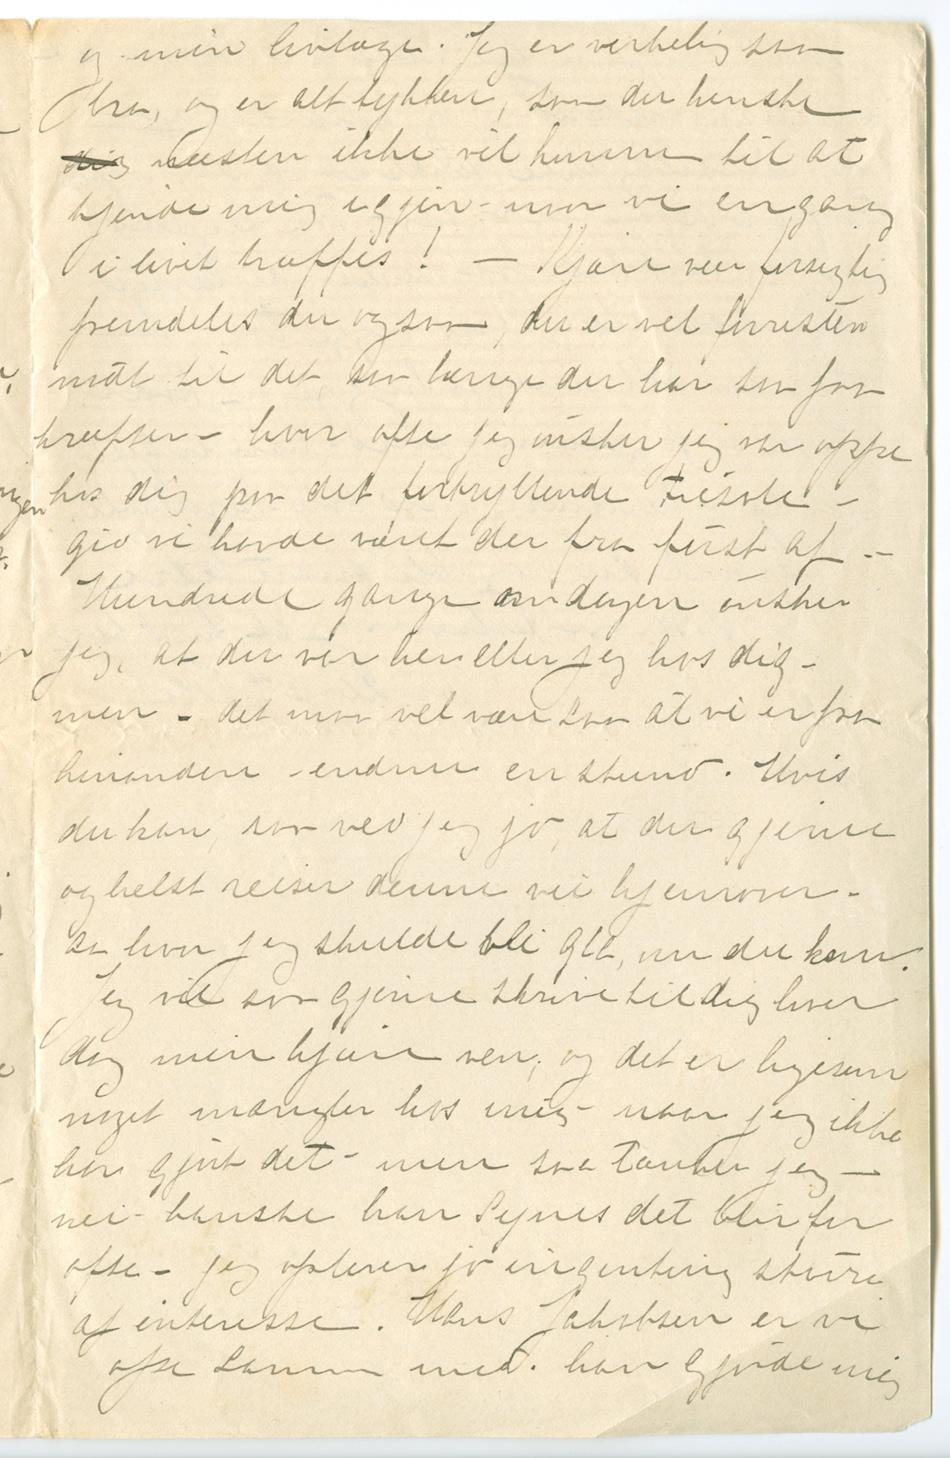 og min livlæge. Jeg er virkelig saa
bra, og er alt tykkere, saa du kanske
dig næsten ikke vil kunne til at
kjende mig igjen - naar vi engang
i livet træffes! — Kjære vær forsigtig
fremdeles du ogsaa, du er vel forresten
nødt til det, saa længe du har saa faa
kræfter - hvor ofte jeg ønsker jeg var oppe
hos dig paa det fortryllende Fiesole -
gid vi havde været der fra først af -
Hundrede gange om dagen ønsker
jeg, at du var her eller jeg hos dig -
men - det maa vel være saa at vi er fra
hinanden - endnu en stund. Hvis
du kan, saa ved jeg jo, at du gjerne
og helst reiser denne vei hjemover -
aa hvor jeg skulde bli gla, om du kom.
Jeg vil saa gjerne skrive til dig hver
dag min kjære ven, og det er ligesom
noget mangler hos mig - naar jeg ikke
har gjort det - men saa tænker jeg —
nei - kanske han synes det blir for
ofte - jeg oplever jo ingenting større
af interesse. Hans Jakobsen er vi
ofte sammen med. han gjorde mig